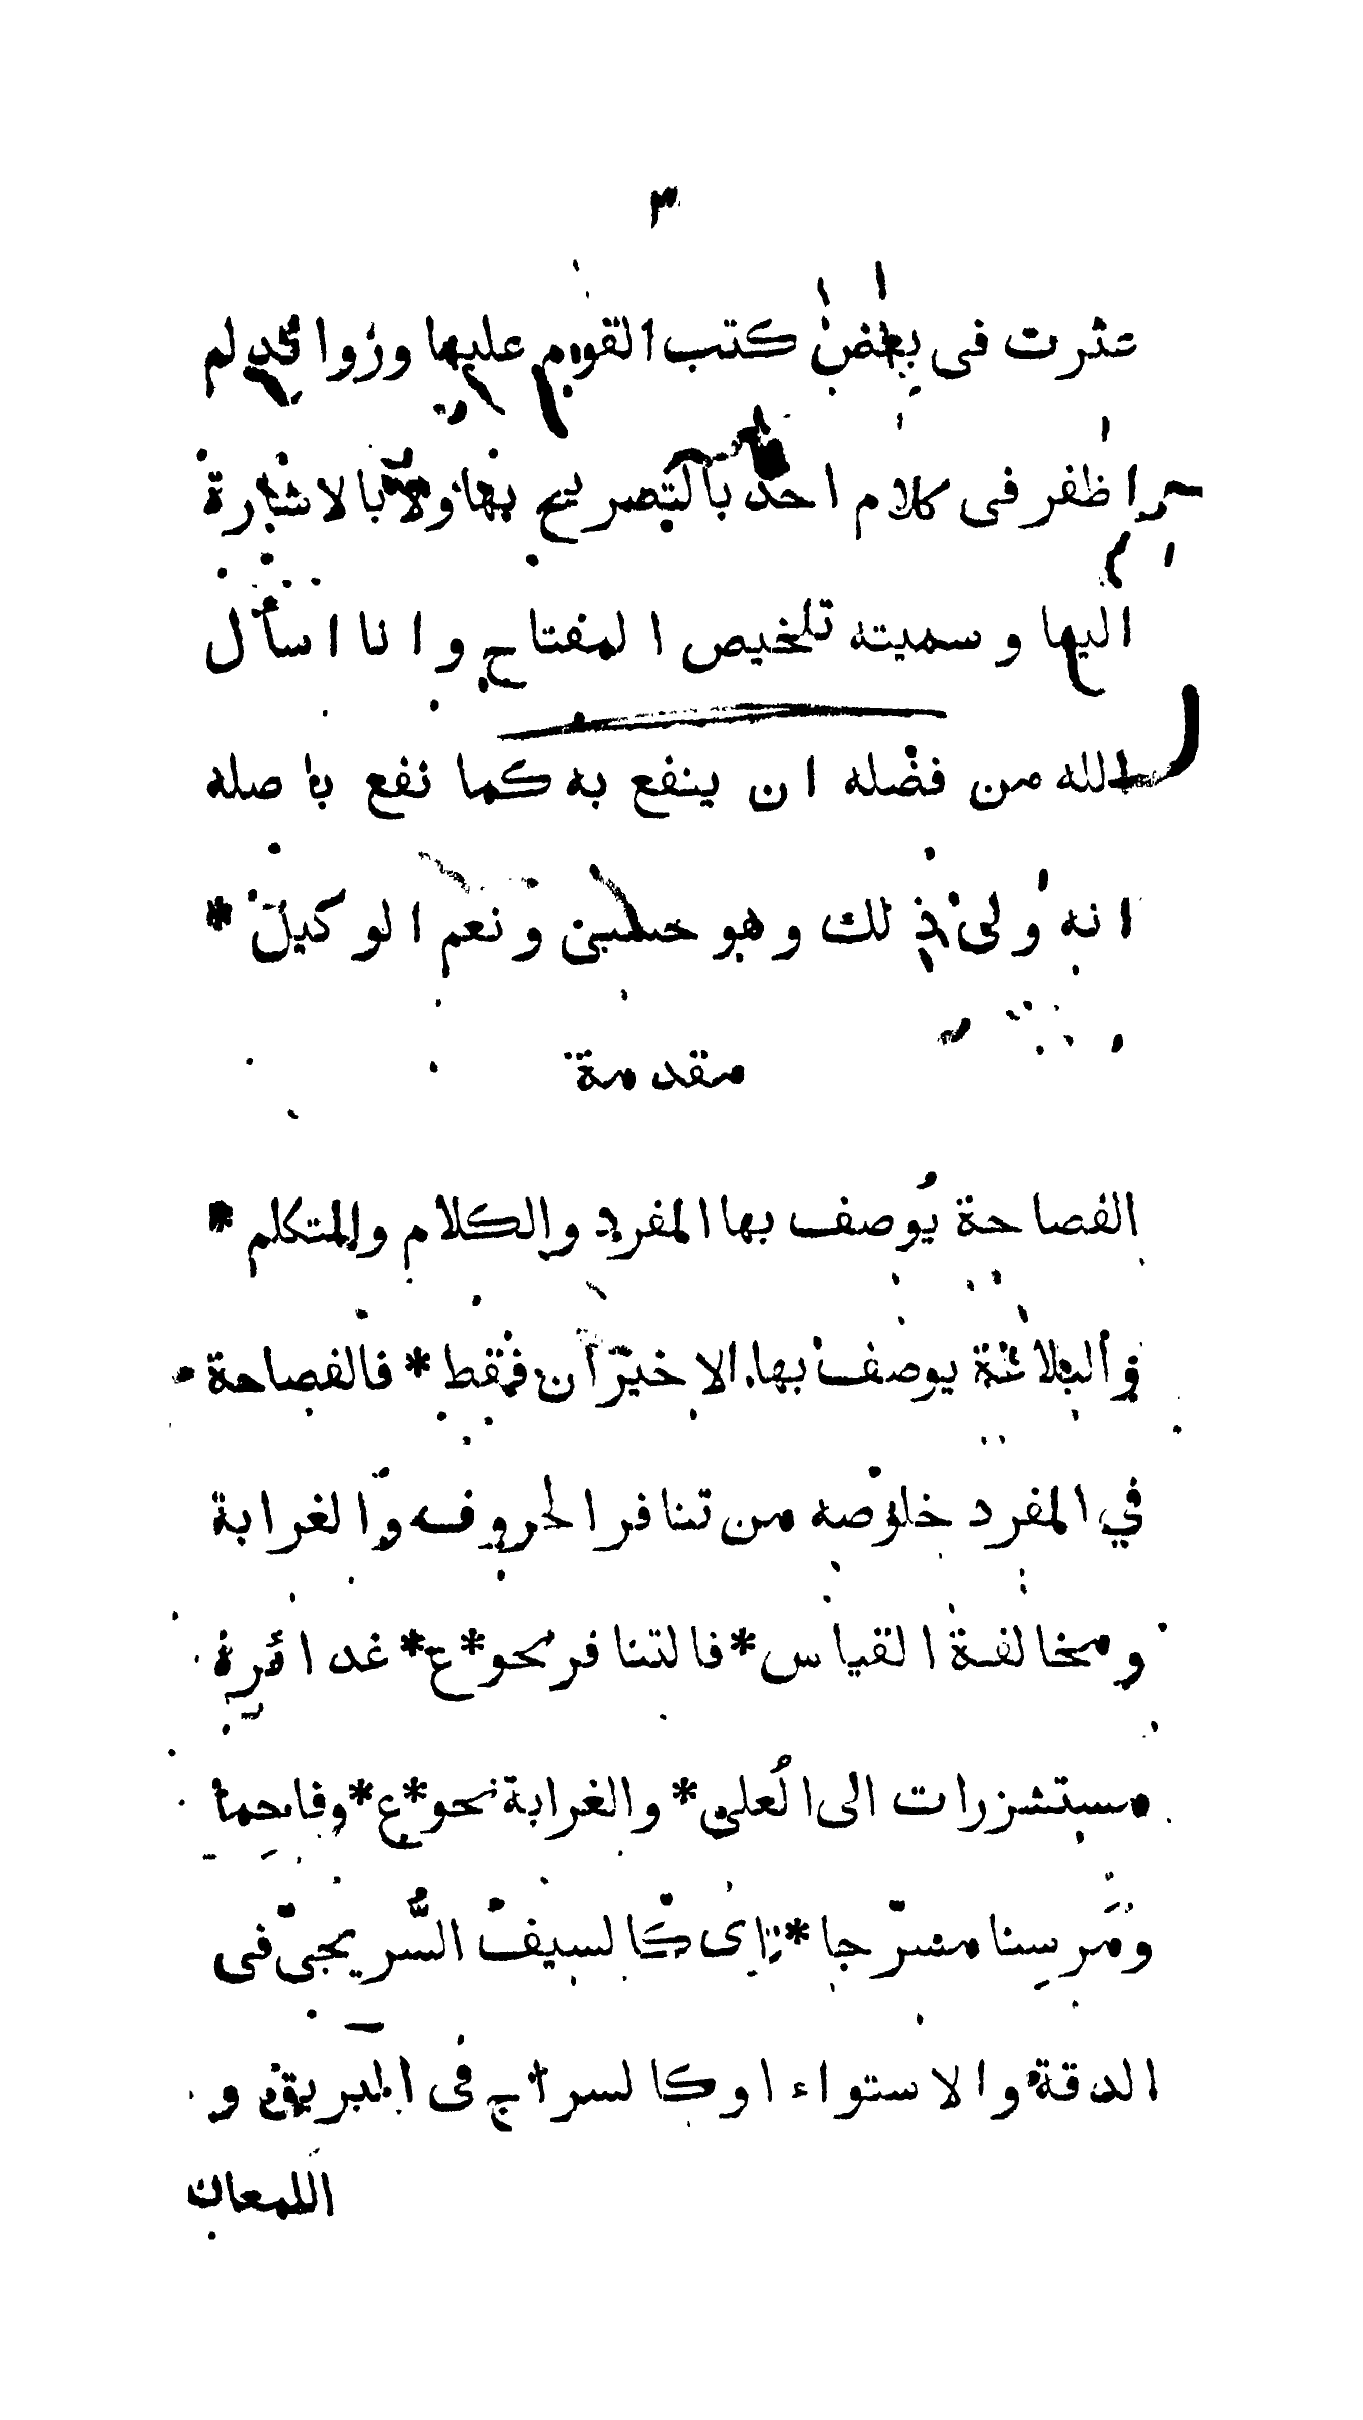 ٣
عثرت فى بعض كتب القوم عليها وزوائد لم
اظفر فى كلام احد بالتصريح بها ولا بالاشارة
اليها وسميته تلخيص المفتاح وانا اسأل
الله من فضله ان ينفع به كما نفع باصله
انه ولى ذلك وهو حسبى ونعم الوكيل *
مقدمة
الفصاحة يُوصف بها المفرد والكلام والمتكلم *
والبلاغة يوصف بها الاخيران فقط * فالفصاحة
في المفرد خلوصه من تنافر الحروف والغرابة
ومخالفة القياس * فالتنافر نحو * ع * غدائره
مستشزرات الى العُلى * والغرابة نحو * ع * وفاحما
ومَرسِنا مسرّجا * اى كالسيف السُّريجىّ فى
الدقة والاستواء اوكالسراج فى البريق و
اللمعان